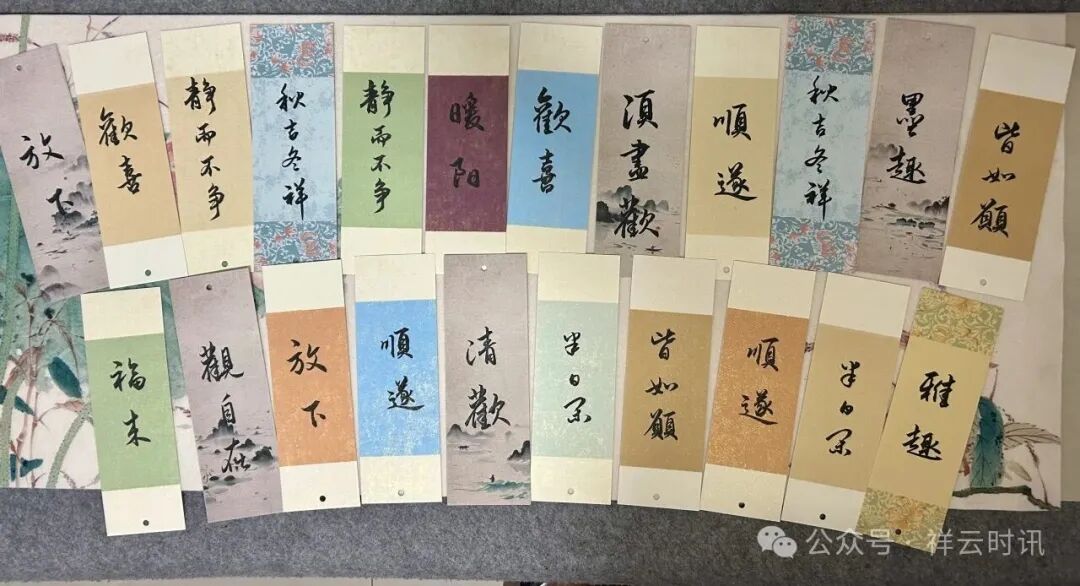 放下
歡喜
静而不争
秋吉冬祥
静而不争
暖阳
歡喜
須盡歡
順遂
秋吉冬祥
墨趣
皆如願
福来
觀自在
放下
順遂
清歡
半日闲
皆如願
順遂
半日闲
雅趣
公众号·祥云时讯